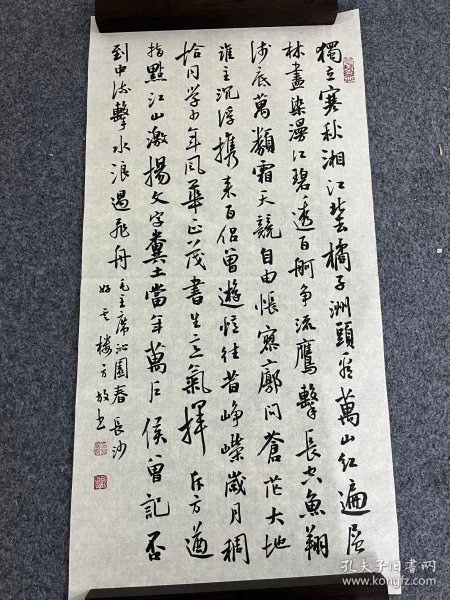 獨立寒秋湘江北去橘子洲頭看萬山红遍层
林盡染漫江碧透百舸争流鷹擊長空魚翔
浅底萬類霜天競自由悵寥廓问蒼茫大地
谁主沉浮携来百侣曾遊忆往昔峥嵘嵗月稠
恰同学少年风華正茂書生意氣揮斥方遒
指點江山激揚文字糞土當年萬户侯曾記否
到中流擊水浪遏飛舟
毛主席沁園春長沙
好雲樓方放书
孔夫子旧書网
www.kongfz.com